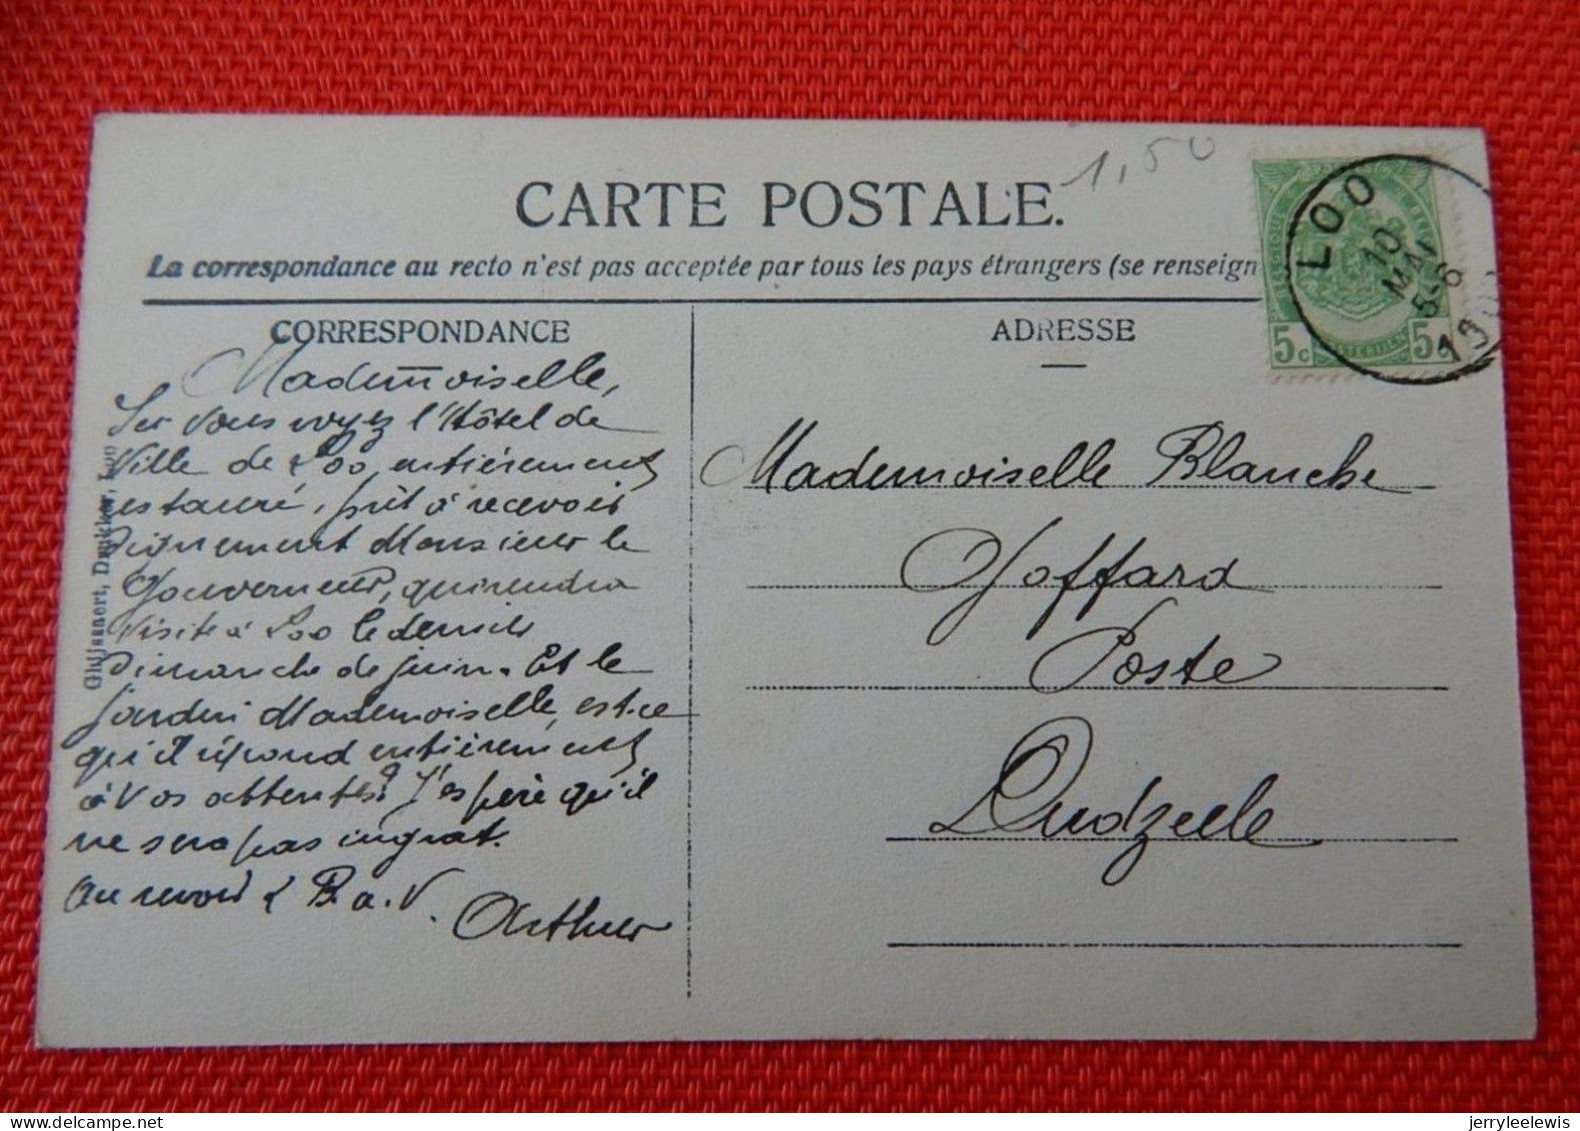 1,50
CARTE POSTALE.
La correspondance au recto n'est pas acceptée par tous les pays étrangers (se renseign
LOO
10
MAI
5-6
5c 5c
CORRESPONDANCE
Mademoiselle,
vous voyez l'Hôtel de
Ville de Loo, entièrement
restauré, prêt à recevoir
dignement Monsieur le
Gouverneur, qui rendra
visite à Loo le dernier
Dimanche de juin. Et le
jardin Mademoiselle, est-ce
qu'il répond entièrement
à vos attentes? J'espère qu'il
ne sera pas ingrat.
Au revoir & B. a. V.
Arthur
Drukker, Loo
ADRESSE
Mademoiselle Blanche
Goffard
Poste
Dudzeele
jerryleelewis